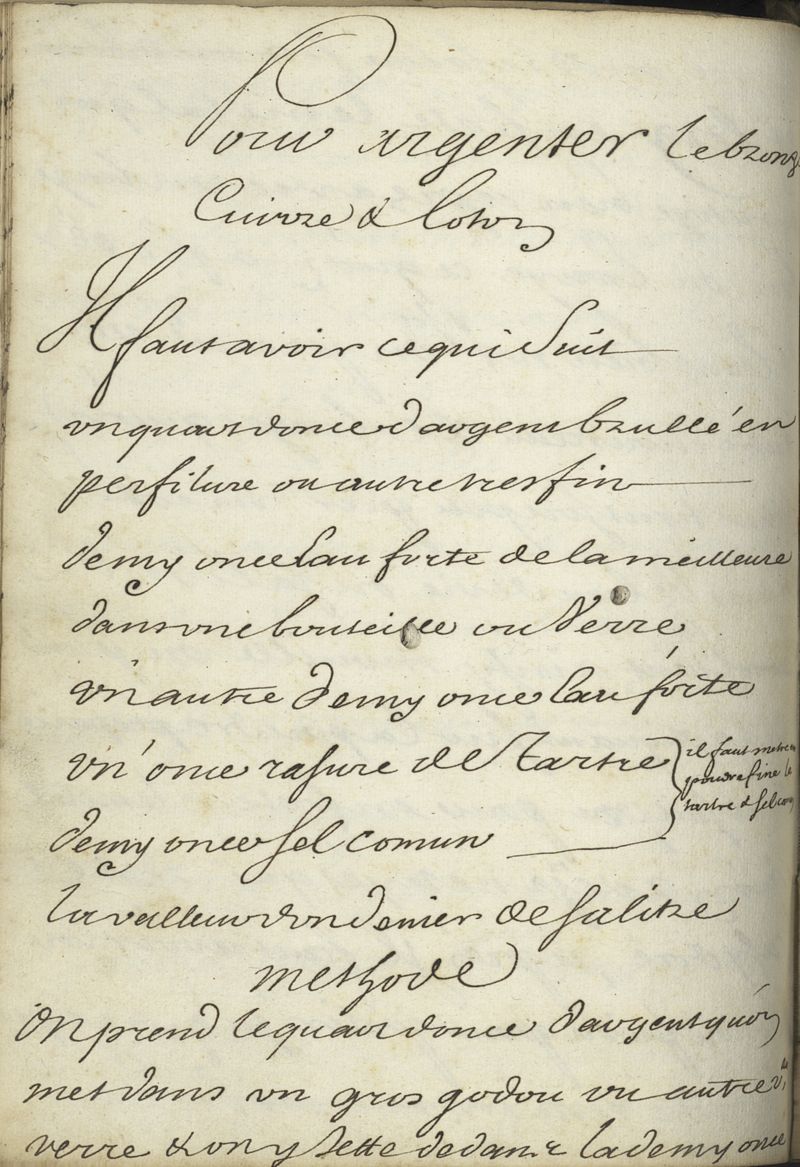 Pour argenter le bronz
Cuivre & loton
Il faut avoir ce qui Suit
vn quart donce d'argent brullé en
perfilure ou autre tres fin
demy once Eau forte de la meilleure
dans vne bouteille ou Verre
vn autre demy once Eau forte
vn' once rasure de Tartre
il faut metre en
poudre fine le
tartre & sel com
demy once sel comun
la valleur d'vn denier de salitre
methode
On prend le quart donce d'argent qu'on
met dans vn gros godou ou autre
verre & on y Jette dedans la demy once